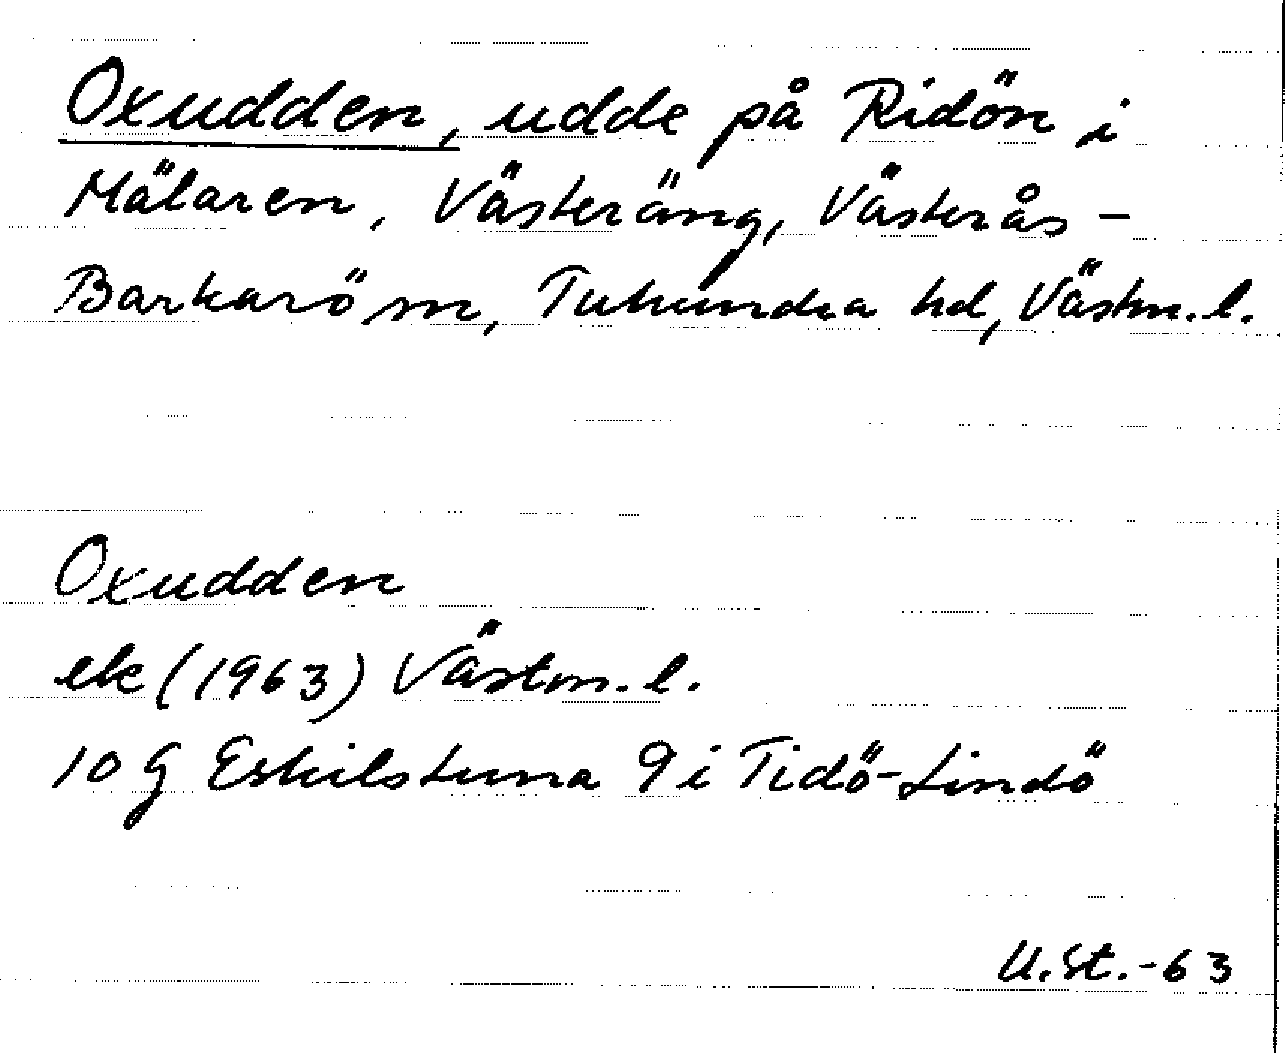 Oxudden, udde på Ridön i
Mälaren, Västeräng, Västerås-
Barkarö sn, Tuhundra hd, Västm. l.
Oxudden
ek (1963) Västm. l.
10 G Eskilstuna 9 i Tidö-Lindö
U. St. -63